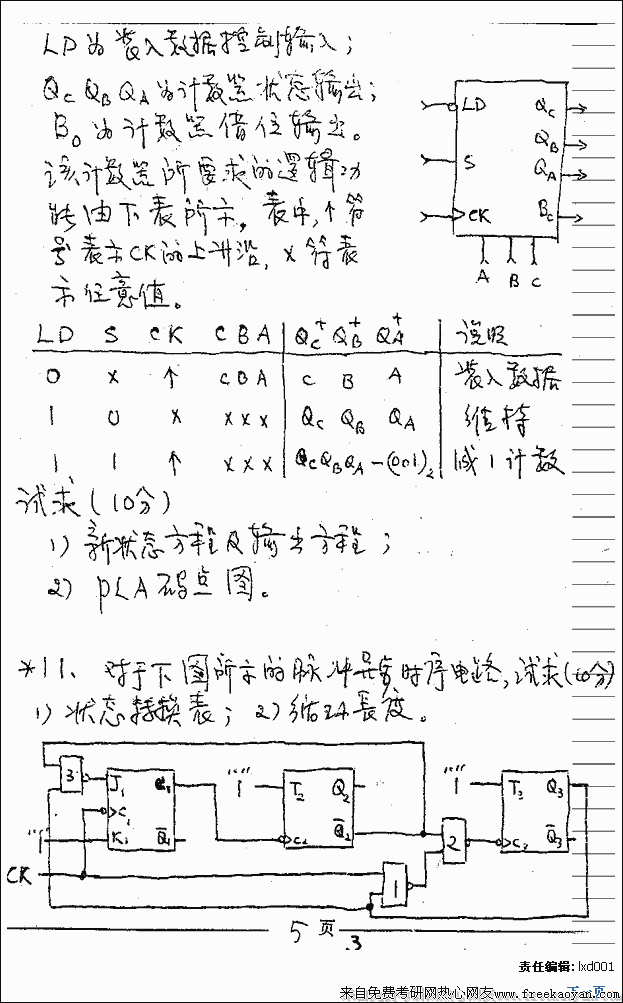 LD为装入数据控制输入;
QC QB QA为计数器状态输出;
B0为计数器借位输出。
该计数器所要求的逻辑功
能由下表所示，表中，↑符
号表示CK的上升沿，×符表
示任意值。
LD QC
QB
S QA
CK BC
A B C
LD S CK C B A QC+ QB+ QA+ 说明
0 × ↑ C B A C B A 装入数据
1 0 × × × × QC QB QA 维持
1 1 ↑ × × × QCQBQA-(001)2 减1计数
试求(10分)
1) 新状态方程及输出方程;
2) PLA码点图。
*11、对于下图所示的脉冲异步时序电路,试求(10分)
1) 状态转换表; 2) 循环长度。
3 J1 Q1 "1" T2 Q2 "1" T3 Q3
C1
"1" K1 Q̄1 C2 Q̄2 2 C3 Q̄3
CK 1
5 页
.3
责任编辑: lxd001
来自免费考研网热心网友www.freekaoyan.com
下一页